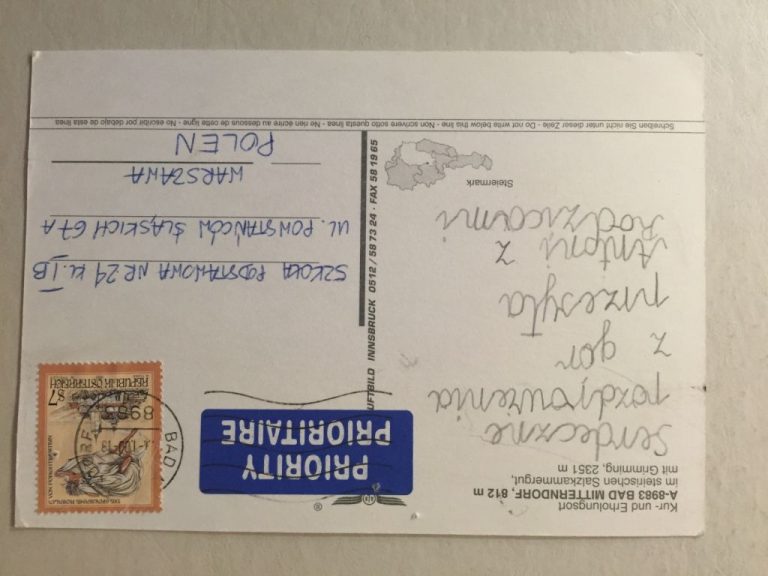 Kur- und Erholungsort
A-8983 BAD MITTERNDORF, 812 m
im steirischen Salzkammergut,
mit Grimming, 2351 m
Serdeczne
pozdrowienia
z gór
przesyła
Antoni z
Rodzicami
Steiermark
LUFTBILD INNSBRUCK 0512/58 73 24 · FAX 58 19 65
PRIORITY
PRIORITAIRE
®
REPUBLIK ÖSTERREICH
S7
8983
BAD
SZKOŁA PODSTAWOWA NR 24 KL. IB
UL. POWSTAŃCÓW ŚLĄSKICH 67A
WARSZAWA
POLEN
Schreiben Sie nicht unter dieser Zeile - Do not write below this line - Non scrivere sotto questa linea - Ne rien écrire au dessous de cette ligne - No escribir por debajo de esta linea